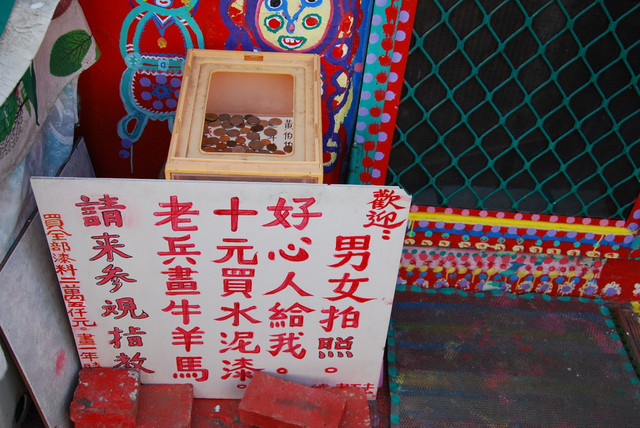 歡迎:
男女拍照。
好心人給我。
十元買水泥漆。
老兵畫牛羊馬
請來參觀指教
買全部漆料二萬五仟元。畫一年
黃伯伯